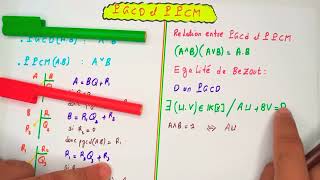 PGCD et PPCM
PGCD(A,B) : A∧B
: A∨B
A B
R₁ Q₁
A = BQ₁ + R₁
B R₁
R₂ Q₂
B = R₁Q₂ + R₂
si R₂ = 0
donc pgcd(A,B) = R₁
R₁ R₂
R₁ = R₂Q₃ + R₃
Relation entre PGCD et PPCM
(A∧B)(A∨B) = A.B
Egalité de Bezout:
D un PGCD
∃ (U,V) ∈ IK[X] / AU + BV = D
A∧B = 1 ⇔ AU